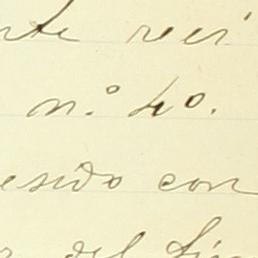 rte reci
n.º 40.
esido con
del